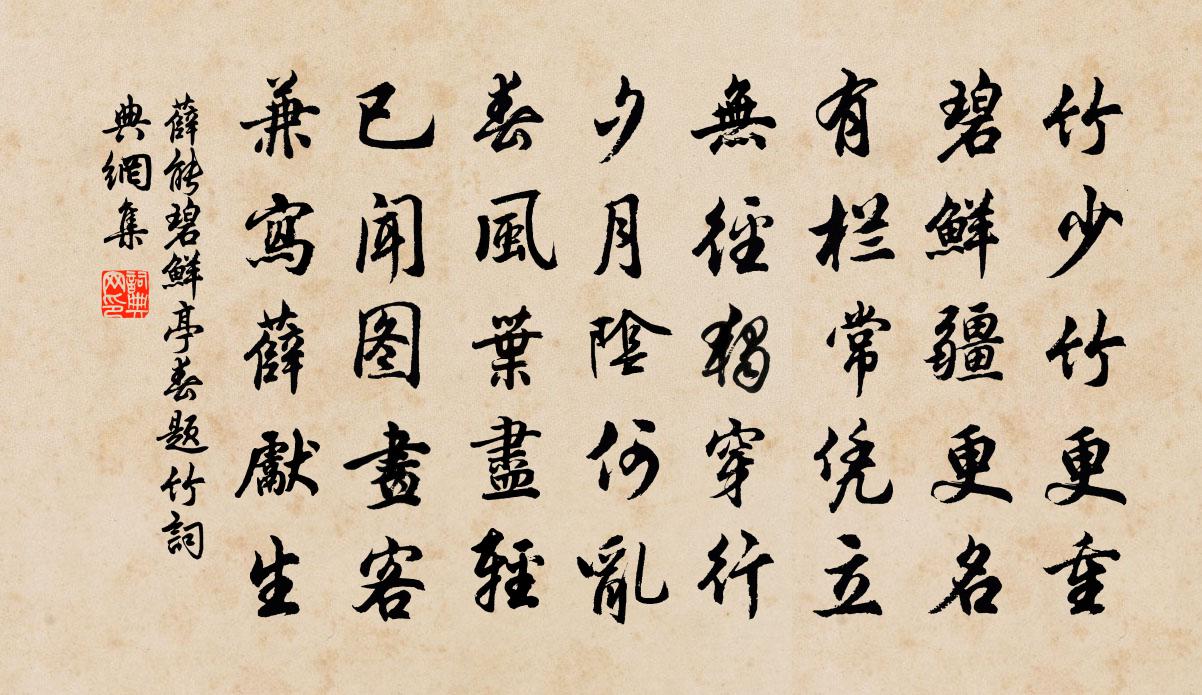 竹少竹更重
碧鮮疆更名
有栏常凭立
無徑獨穿行
夕月陰何亂
春風葉盡輕
已闻图畫客
兼寫薛獻生
薛能碧鮮亭春题竹詞
典網集
詞典
网印